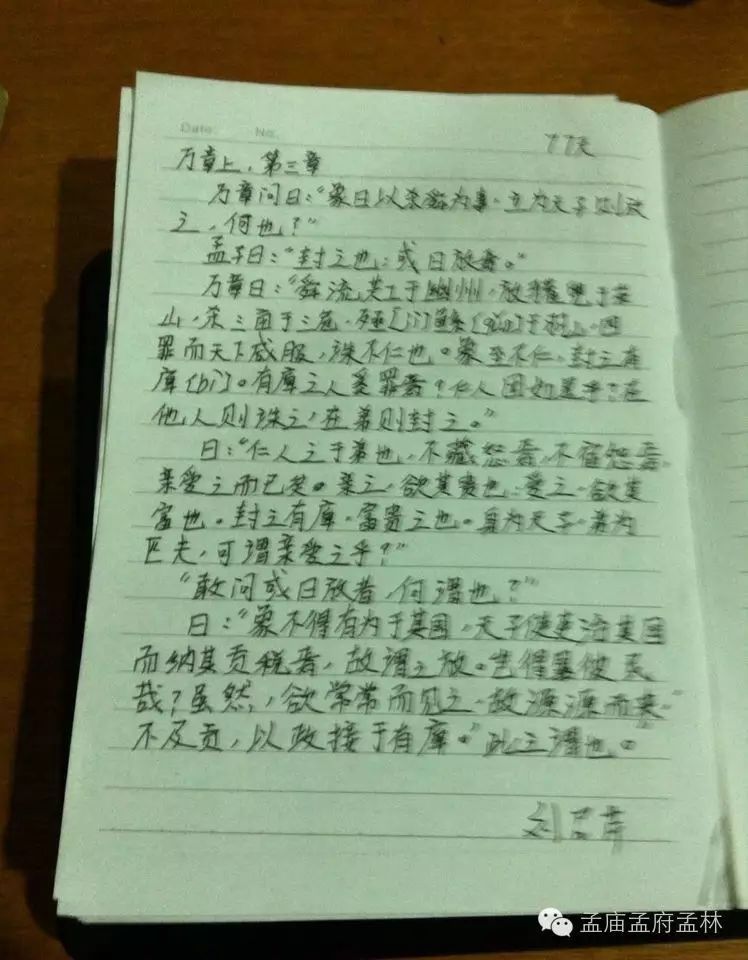 Date:    No:
77天
万章上,第三章
万章问曰:“象日以杀舜为事,立为天子则放
之,何也?”
孟子曰:“封之也;或曰放焉。”
万章曰:“舜流共工于幽州,放驩兜于崇
山,杀三苗于三危,殛[jí]鲧[gǔn]于羽山,四
罪而天下咸服,诛不仁也。象至不仁,封之有
庳[bì]。有庳之人奚罪焉?仁人固如是乎?在
他人则诛之,在弟则封之。”
曰:“仁人之于弟也,不藏怒焉,不宿怨焉,
亲爱之而已矣。亲之,欲其贵也;爱之,欲其
富也。封之有庳,富贵之也。身为天子,弟为
匹夫,可谓亲爱之乎?”
“敢问或曰放者,何谓也?”
曰:“象不得有为于其国,天子使吏治其国
而纳其贡税焉,故谓之放。岂得暴彼民
哉?虽然,欲常常而见之,故源源而来,
不及贡,以政接于有庳。”此之谓也。
孟庙孟府孟林